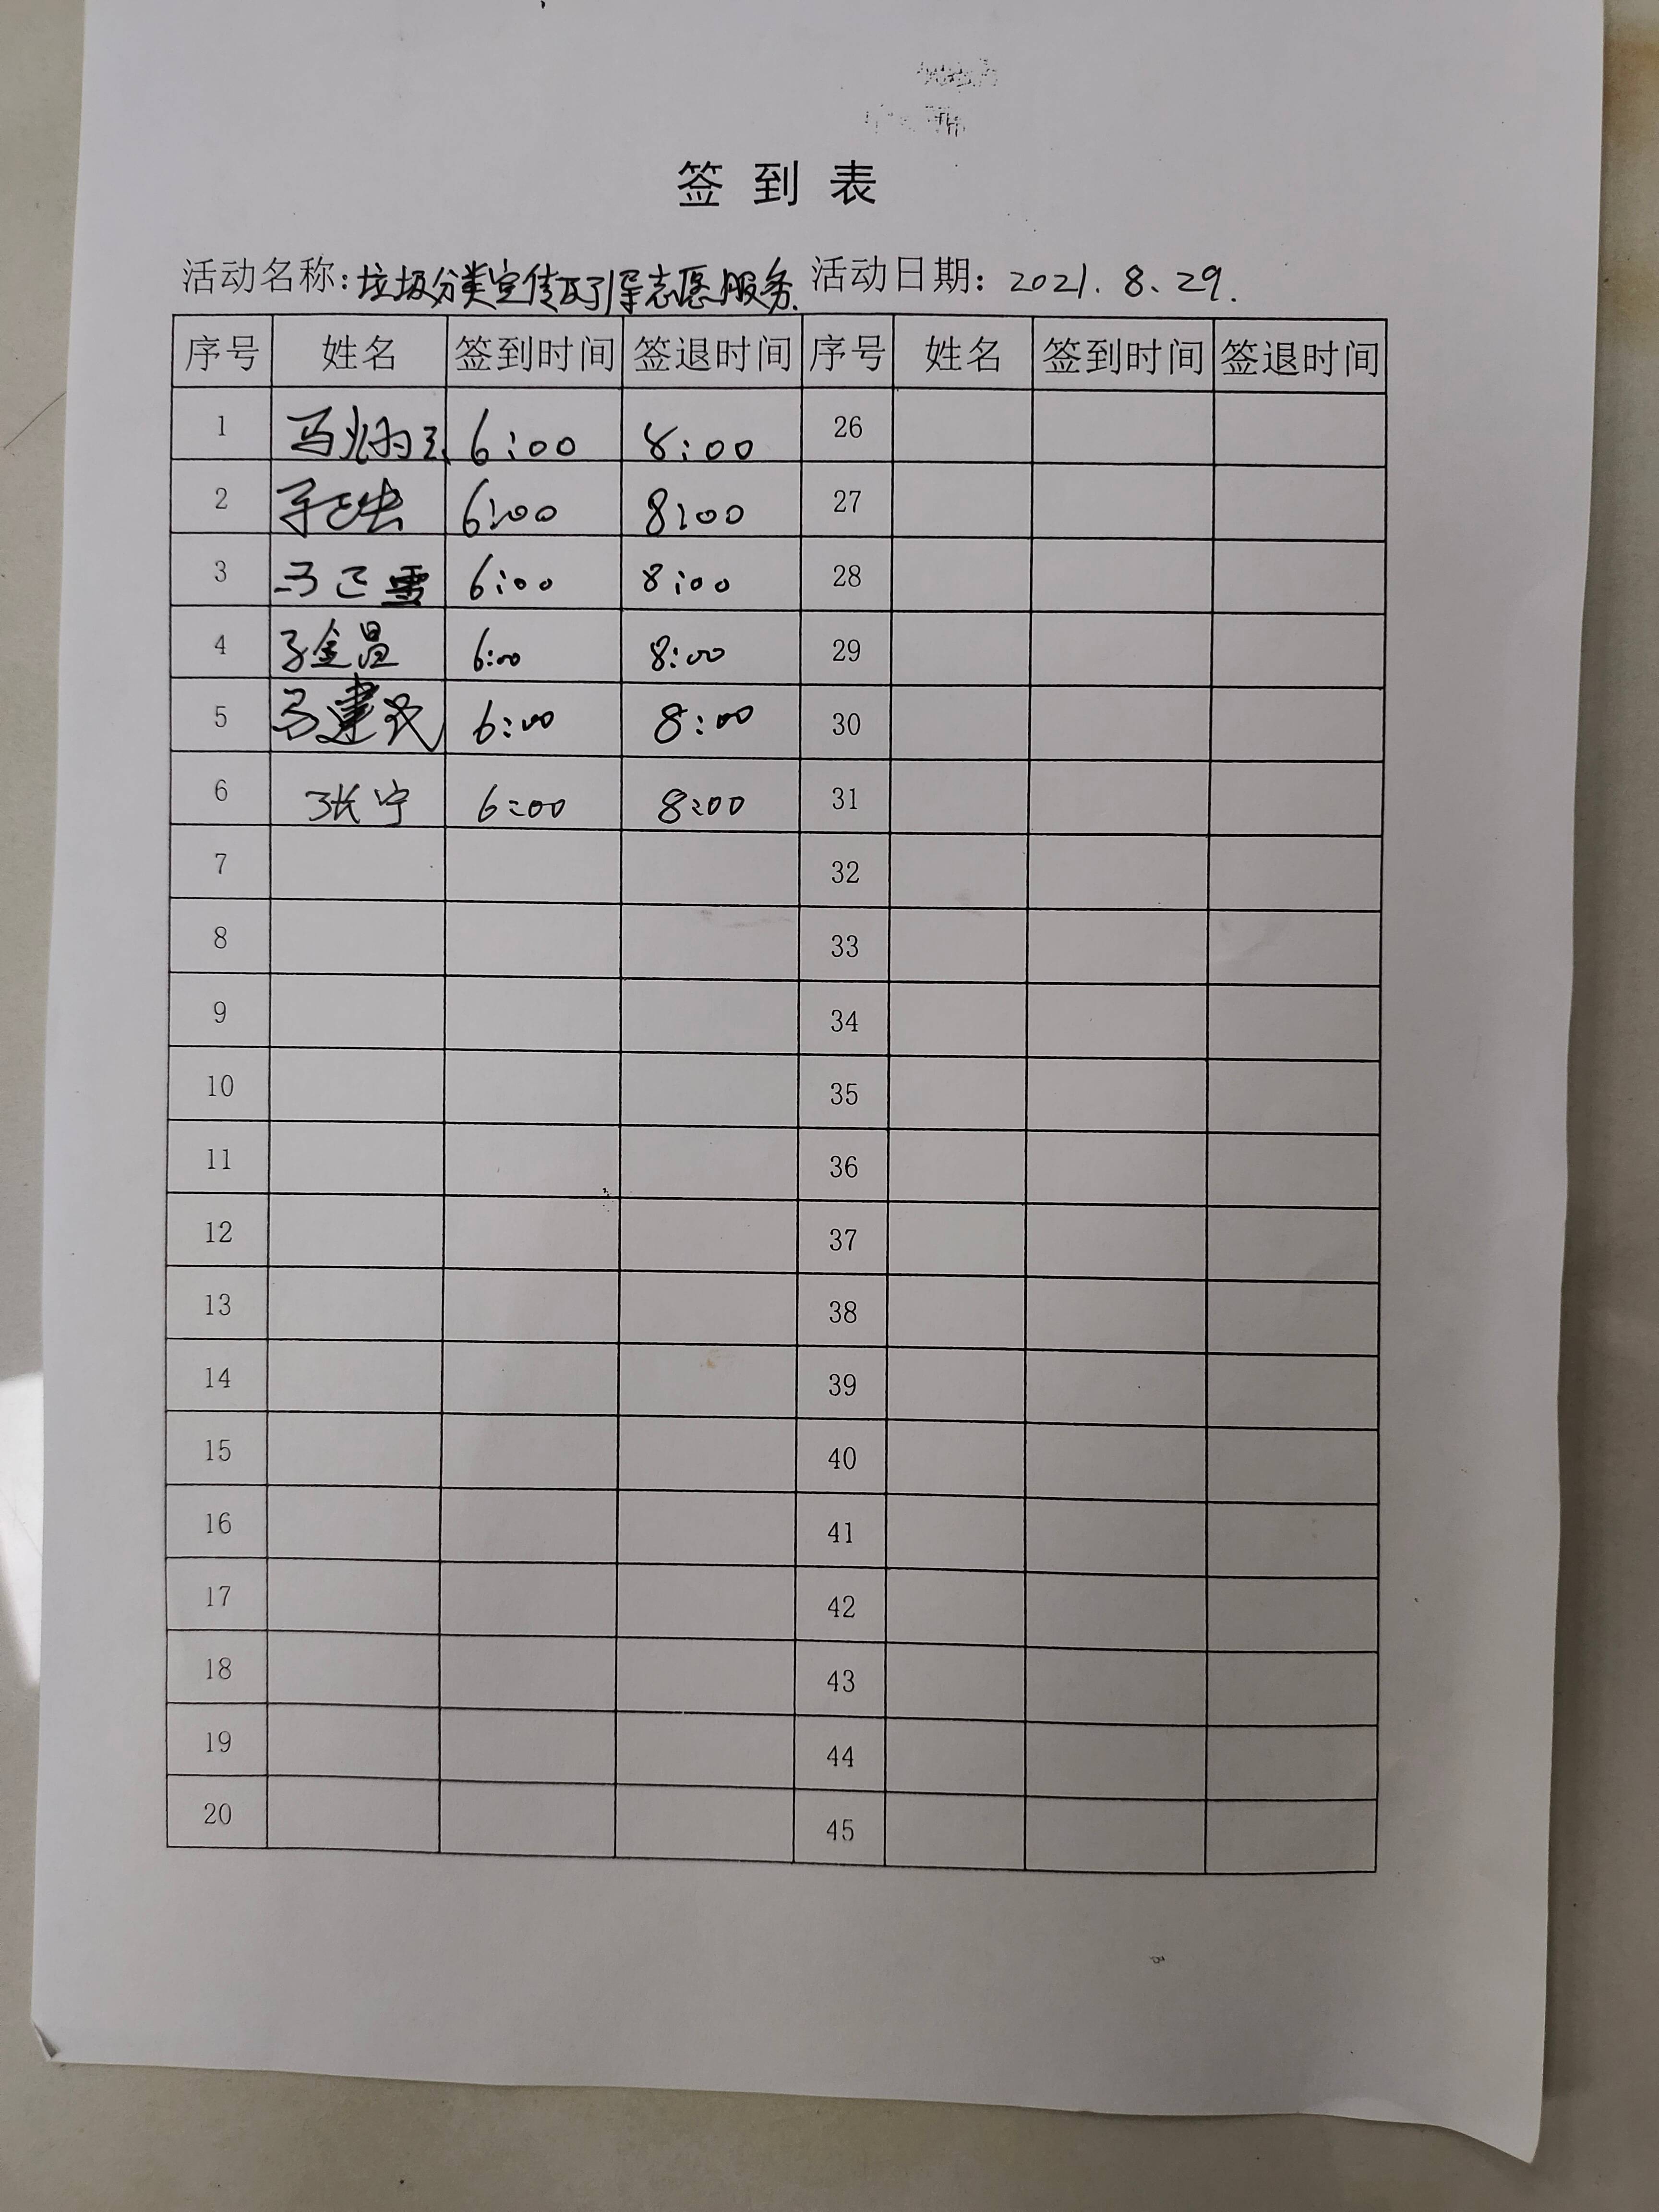 签到表
活动名称：垃圾分类宣传引导志愿服务 活动日期：2021.8.29.
序号 姓名 签到时间 签退时间 序号 姓名 签到时间 签退时间
1 6:00 8:00 26
2 6:00 8:00 27
3 6:00 8:00 28
4 6:00 8:00 29
5 马建民 6:00 8:00 30
6 张宁 6:00 8:00 31
7 32
8 33
9 34
10 35
11 36
12 37
13 38
14 39
15 40
16 41
17 42
18 43
19 44
20 45